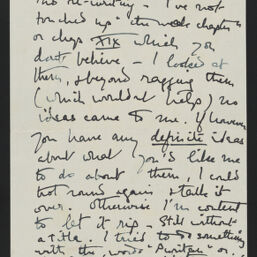 re-writing – I've not
touched up "the weak chapter"
or chaps XIX which you
don't believe – I looked at
them, & beyond ragging them
(which wouldn't help) no
ideas came to me. If however
you have any definite ideas
about what you'd like me
to do about them, I could
not round again & talk it
over. Otherwise I'm content
to let it rip – Still without
a title. I tried to do something
with the word "Puritan" or,